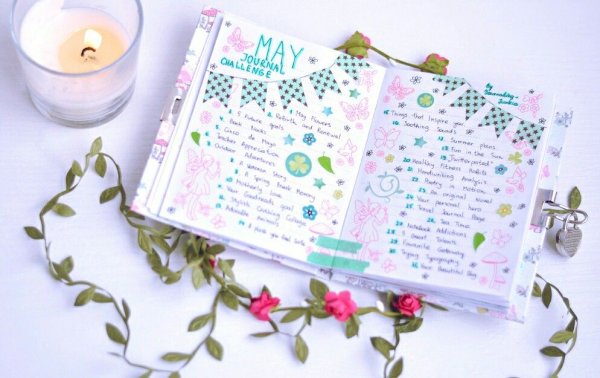 MAY
JOURNAL
CHALLENGE
1 May Flowers
2 Rebirth and Renewal
3 5 Future goals
4. Book Nooks
5. Cinco de Mayo
6 Teacher Appreciation
7 Outdoor Adventures
8 A Veteran Story
9 A Spring Break Memory
10 Motherly Love
11 Your Goodreads goal
12 Stylish Clothing Collage
13 Adorable Animals
14 I thank you God
15 Things that Inspire you
16 Soothing Sounds
17. Summer plans
18. Fun in the Sun
19 Juxtaposed
20 Healthy Fitness Habits
21 Handwriting Analysis
22 Poetry in Motion
23 An original Novel
24 Your personal
25 Travel Journal Page
26 Tea Time
27 Notebook Addictions
28 A Great Talent
29 Favourite Getaway
30 Trying Typography
31 Your Beautiful Day